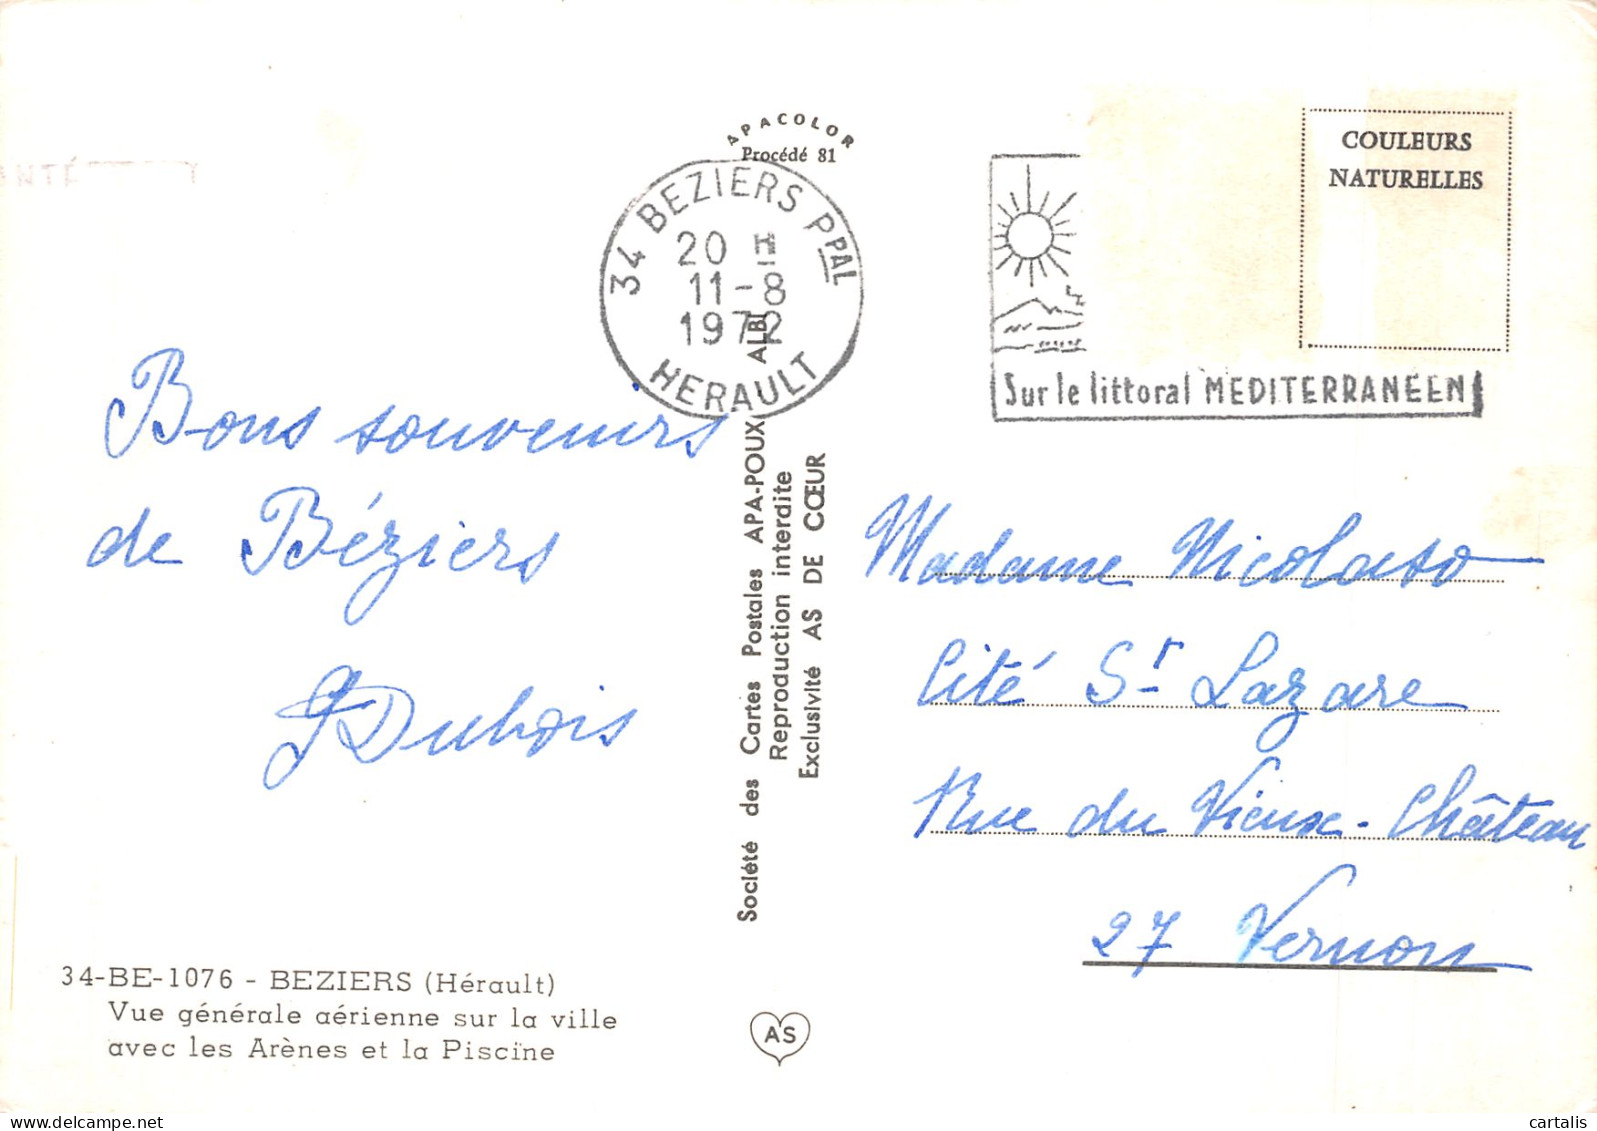 APACOLOR
Procédé 81
34 BEZIERS PPAL
20 H
11-8
1972
HERAULT
COULEURS
NATURELLES
Sur le littoral MEDITERRANEEN
Bons souvenirs
de Béziers
Dubois
Société des Cartes Postales APA-POUX ALBI
Reproduction interdite
Exclusivité AS DE CŒUR
Madame
Cité St Lazare
Rue du Vieux-Château
27 Vernon
34-BE-1076 - BEZIERS (Hérault)
Vue générale aérienne sur la ville
avec les Arènes et la Piscine
AS
cartalis